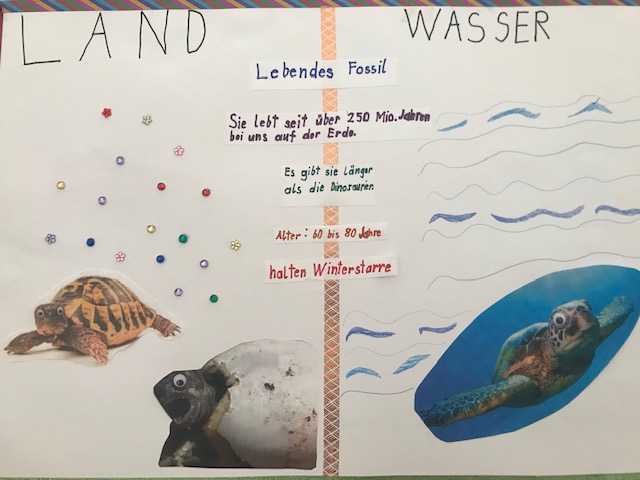 LAND
WASSER
Lebendes Fossil
Sie lebt seit über 250 Mio. Jahren
bei uns auf der Erde.
Es gibt sie länger
als die Dinosaurier.
Alter: 60 bis 80 Jahre
halten Winterstarre